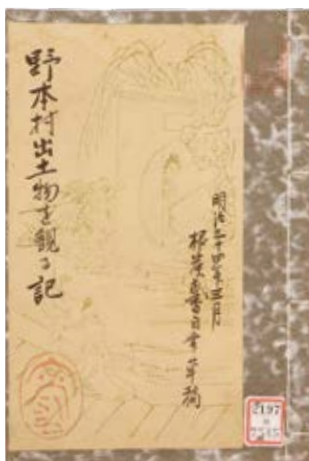 野本村出土物を観る記
明治三十四年三月
根岸武香自筆草稿
2197